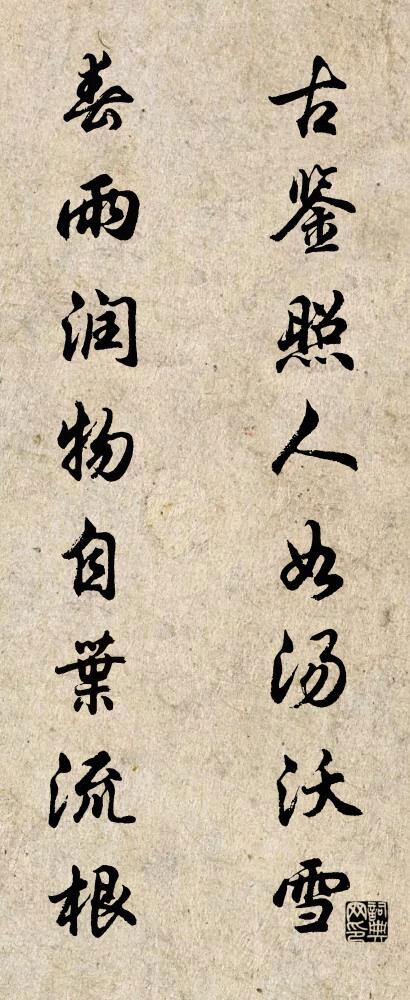 古鉴照人如汤沃雪
春雨润物自葉流根
詞典网印